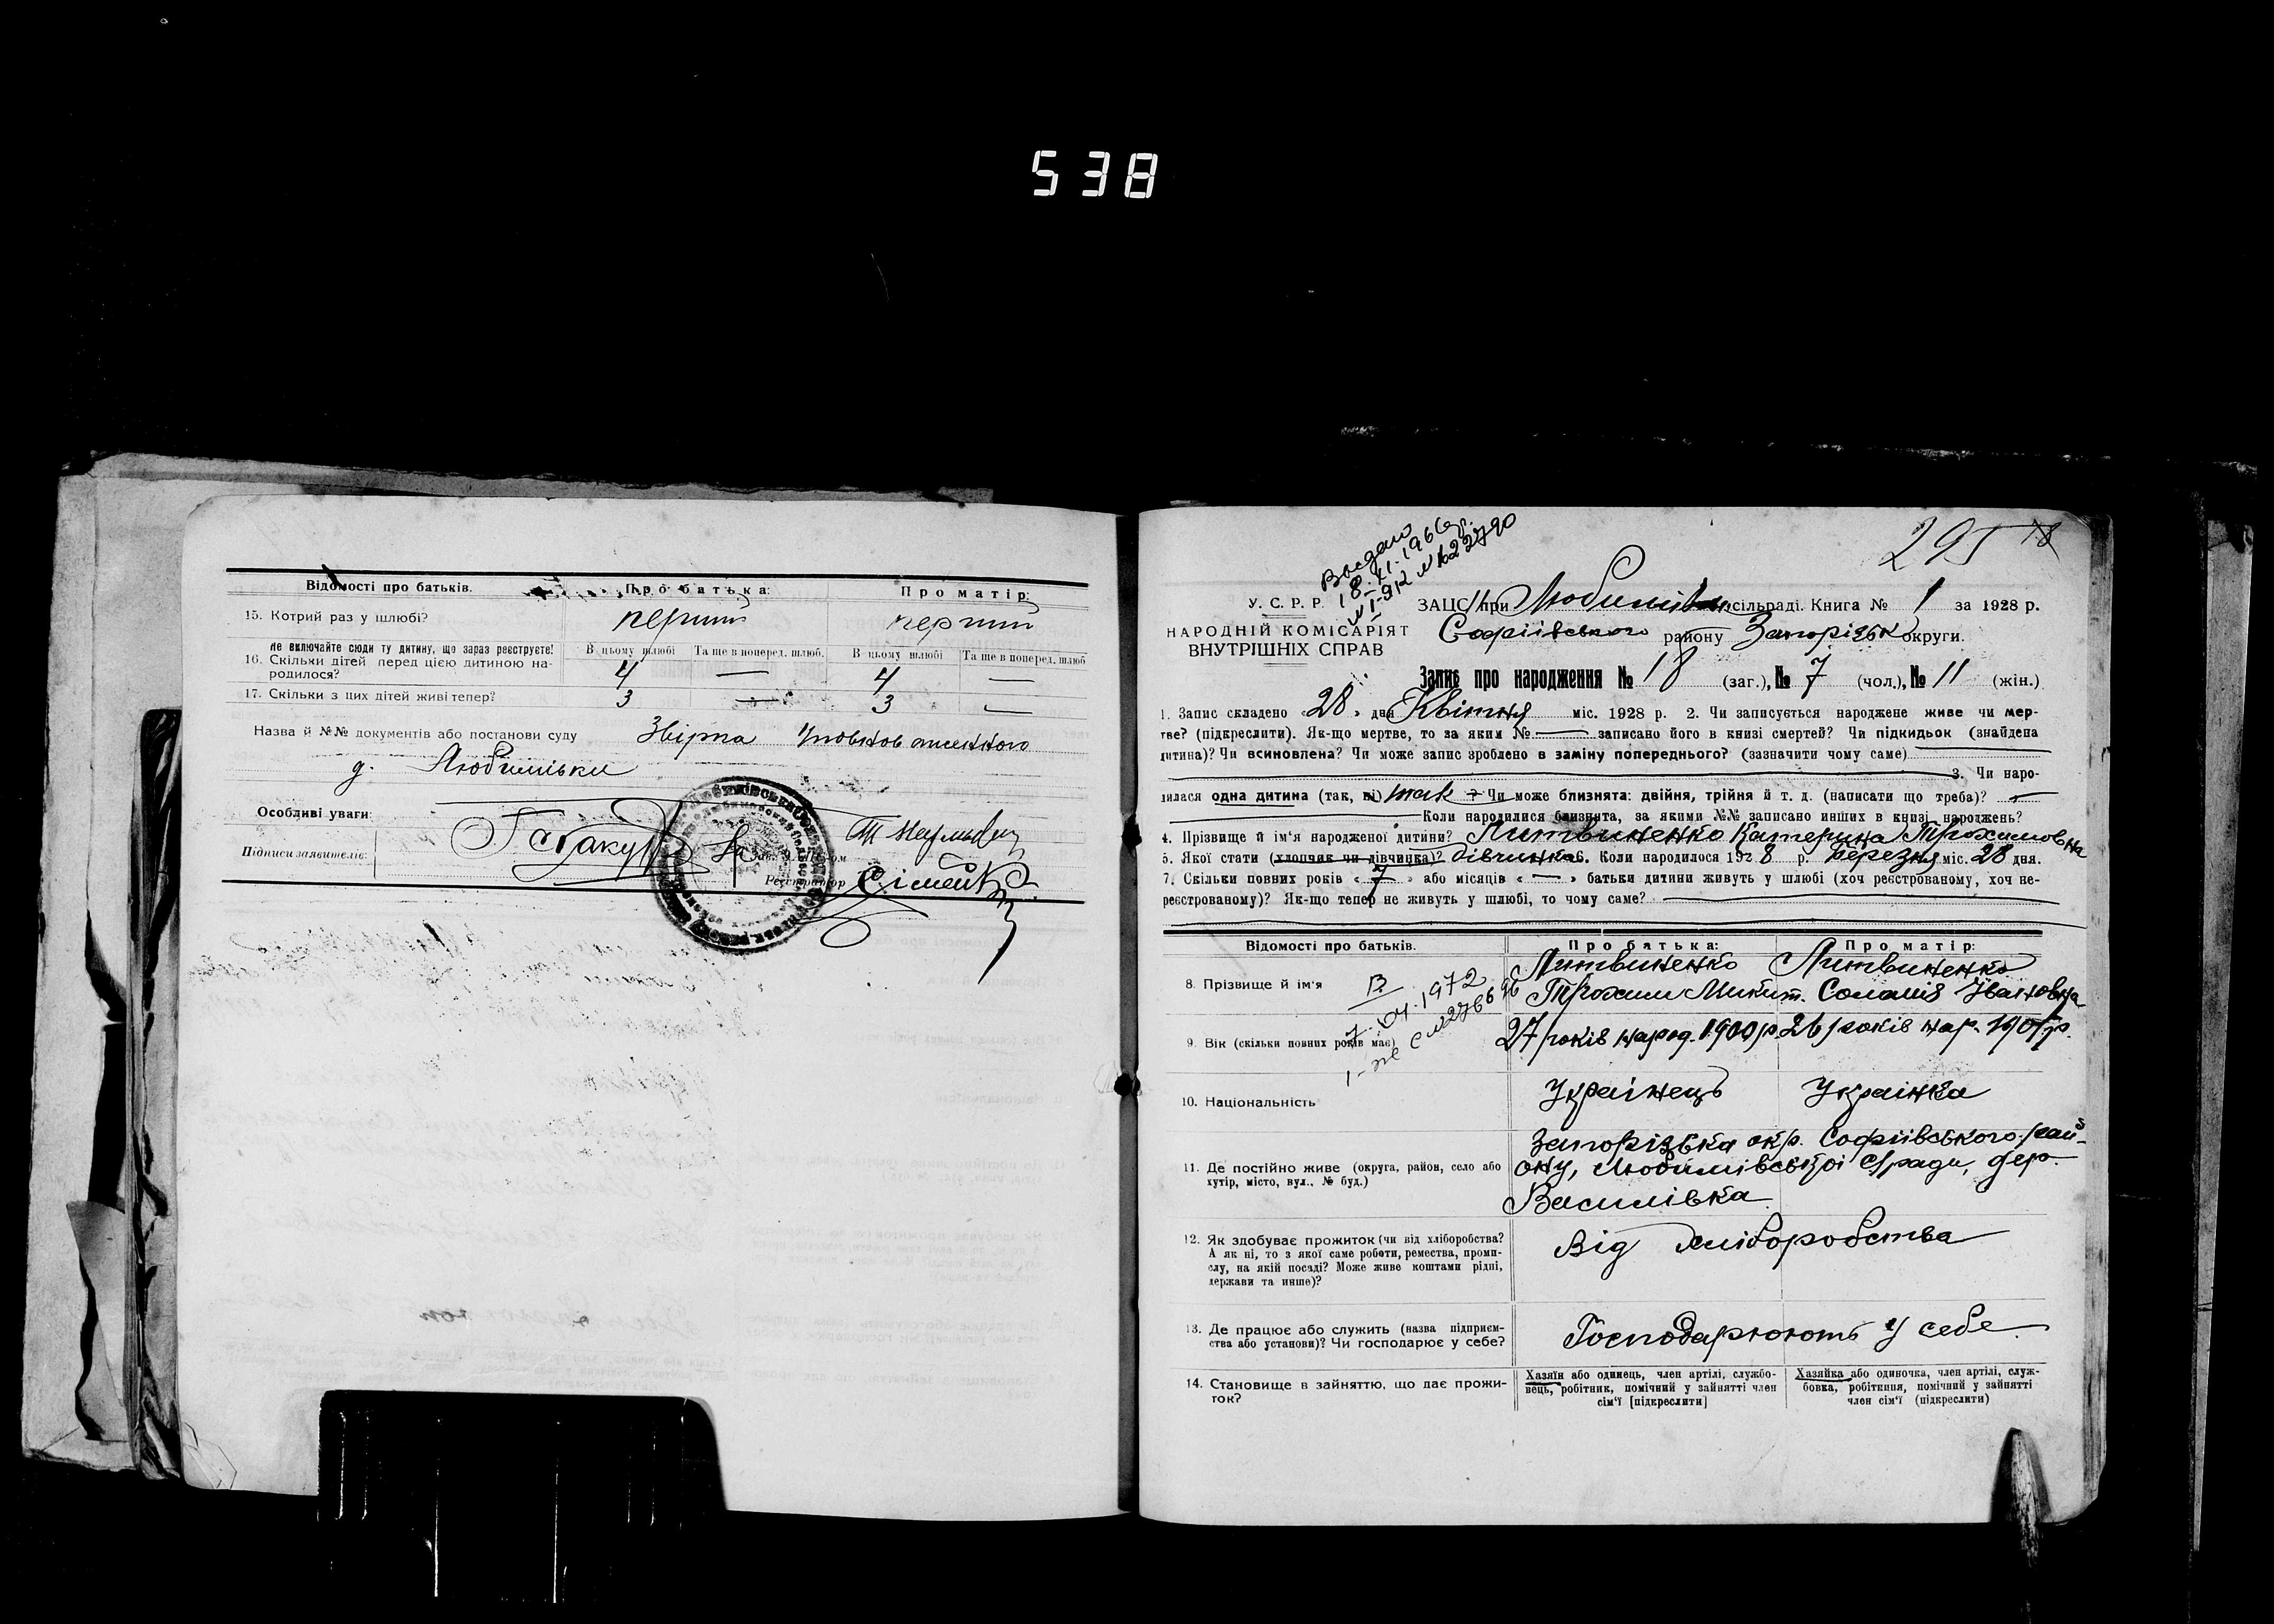 538
Відомості про батьків. Про батька: Про матір:
15. Котрий раз у шлюбі? перший перший
Не включайте сюди ту дитину, що зараз реєструєте! В цьому шлюбі Та ще в поперед. шлюб. В цьому шлюбі Та ще в поперед. шлюб
16. Скільки дітей перед цією дитиною на-
родилося? 4 — 4 —
17. Скільки з цих дітей живі тепер? 3 — 3 —
Назва й №№ документів або постанови суду Звірка Уповноваженного
д. Любимівки
Особливі уваги:
Підписи заявителів:
Зав. ЗАЦС'ом
Реєстратор
295 18
Выдано
18.XI.1966г.
У. С. Р. Р. ЗАЦС при Любимівськ сільраді. Книга № 1 за 1928 р.
НАРОДНІЙ КОМІСАРІЯТ Софіївського району Запорізьк округи.
ВНУТРІШНІХ СПРАВ
Запис про народження № 18 (заг.), № 7 (чол.), № 11 (жін.)
1. Запис складено «28» дня Квітня міс. 1928 р. 2. Чи записується народжене живе чи мер-
тве? (підкреслити). Як-що мертве, то за яким № — записано його в книзі смертей? Чи підкидьок (знайдена
дитина)? Чи всиновлена? Чи може запис зроблено в заміну попереднього? (зазначити чому саме)
3. Чи наро-
дилася одна дитина (так, ні) так ? Чи може близнята: двійня, трійня й т. д. (написати що треба)? —
Коли народилися близнята, за якими №№ записано инших в книзі народжень?
4. Прізвище й ім'я народженої дитини? Литвиненко Катерина Трохимовна
5. Якої стати (хлопчик чи дівчинка)? дівчинка 6. Коли народилося 1928 р. березня міс. 28 дня.
7. Скільки повних років «7» або місяців «—» батьки дитини живуть у шлюбі (хоч реєстрованому, хоч не-
реєстрованому)? Як-що тепер не живуть у шлюбі, то чому саме?
Відомості про батьків. Про батька: Про матір:
8. Прізвище й ім'я Литвиненко Литвиненко
Трохим Микит. Соломія Івановна
В.
04.1972
9. Вік (скільки повних років має) 27 років народ. 1900 р. 26 років нар. 1901 р.
10. Національність Українець Українка
11. Де постійно живе (округа, район, село або
хутір, місто, вул., № буд.) Запорізька окр. Софіївського рай-
ону, Любимівської с/ради, дер.
Василівка
12. Як здобуває прожиток (чи від хліборобства?
А як ні, то з якої саме роботи, ремества, проми-
слу, на якій посаді? Може живе коштами рідні,
держави та инше)? Від хліборобства
13. Де працює або служить (назва підприєм-
ства або установи)? Чи господарює у себе? Господарюють у себе
14. Становище в зайняттю, що дає прожи-
ток?
Хазяїн або одинець, член артілі, службо-
вець, робітник, помічний у зайнятті член
сім'ї [підкреслити]
Хазяйка або одиночка, член артілі, служ-
бовка, робітниця, помічний у зайнятті
член сім'ї (підкреслити)